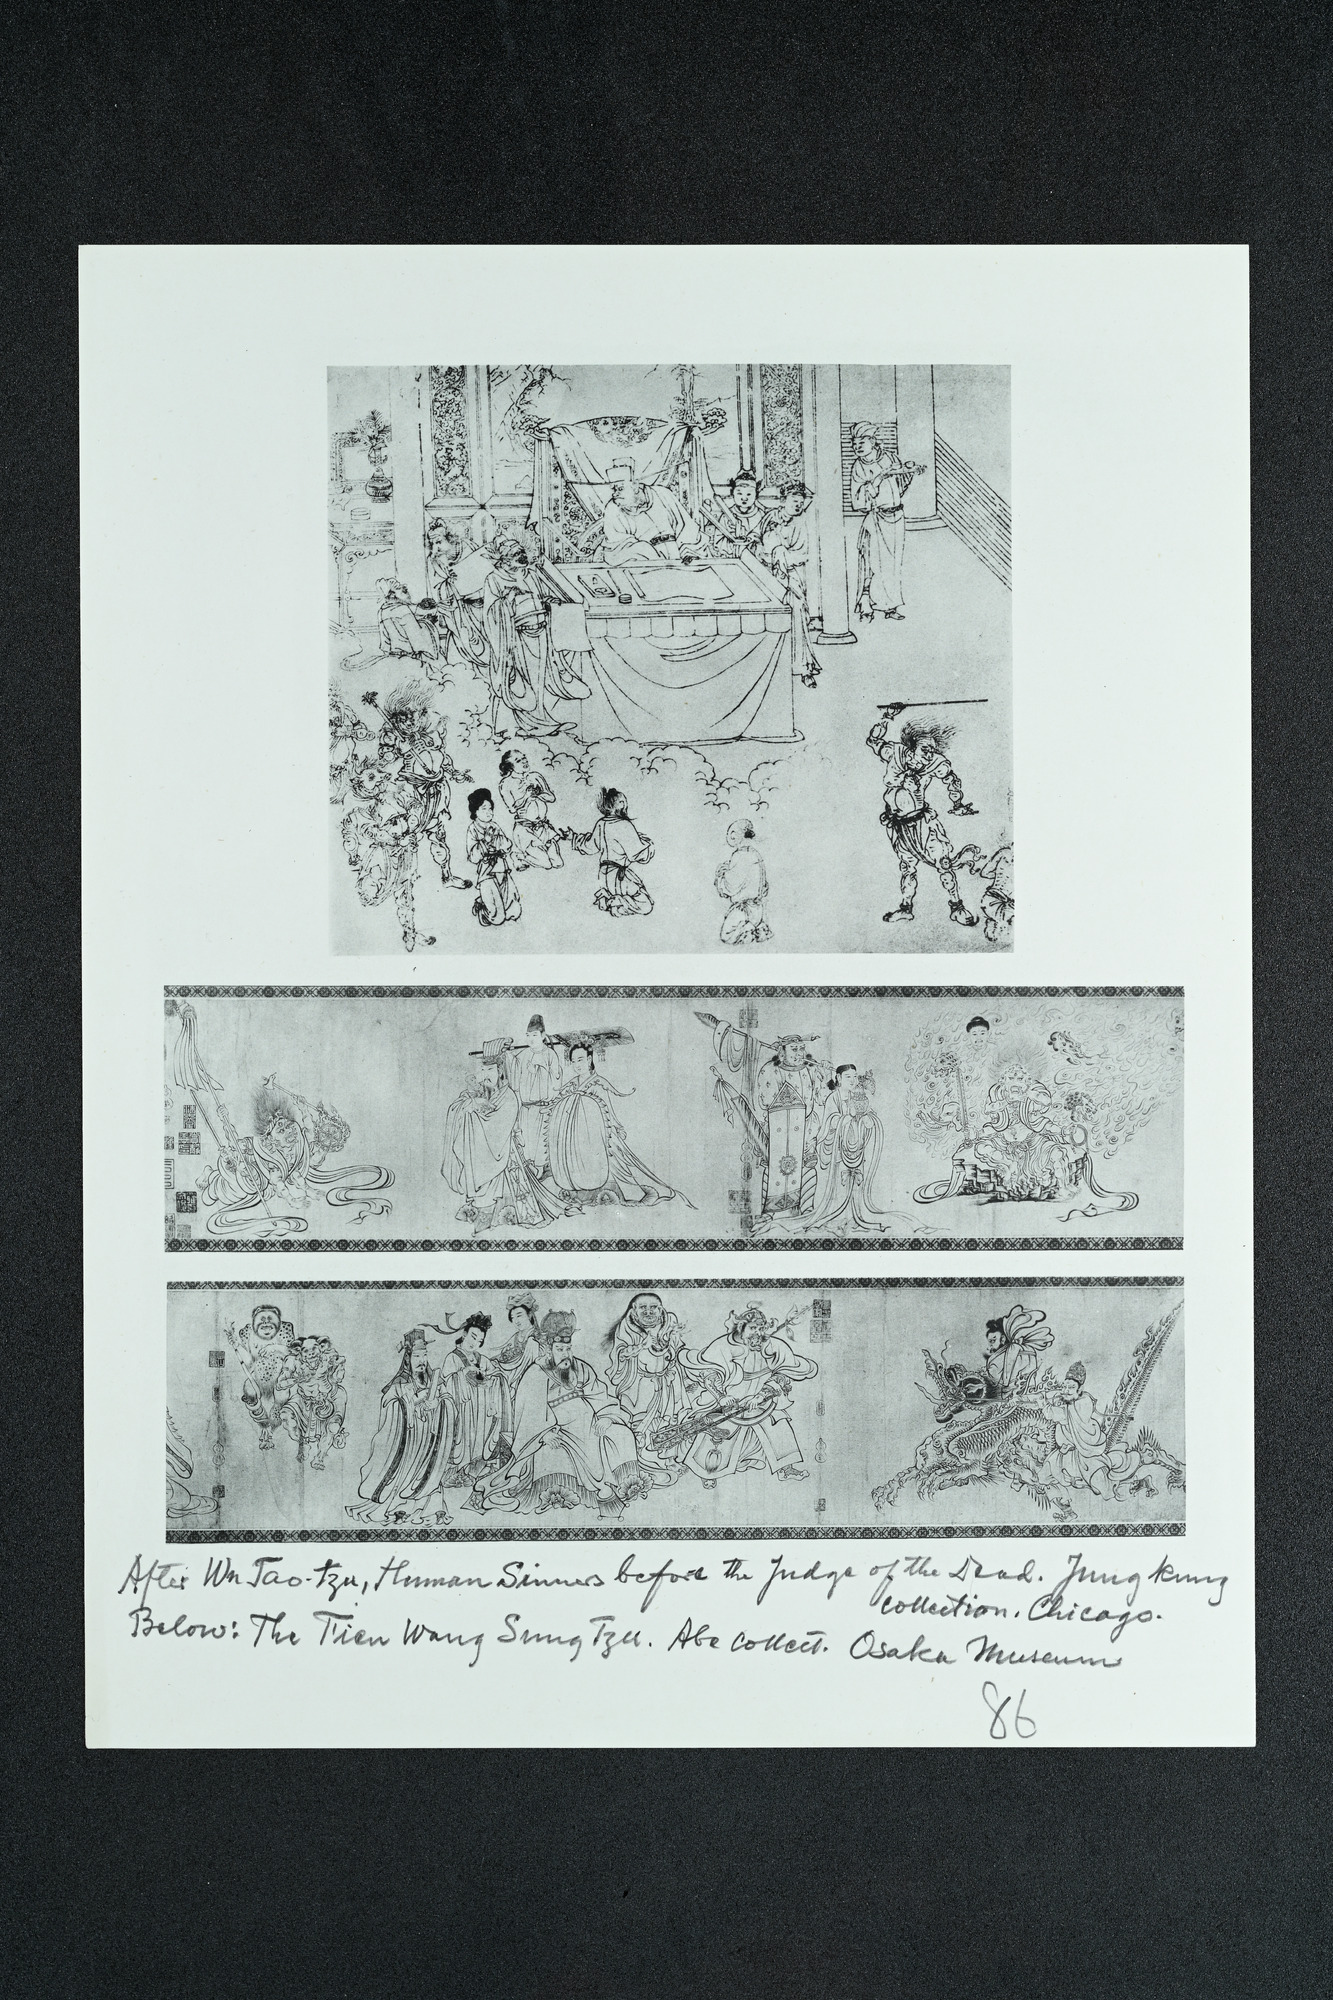 After Wu Tao-tzu, Human Sinners before the Judge of the Dead. Jungkung
collection. Chicago.
Below: The Tien Wang Sung Tzu. Abe collect. Osaka Museum
86